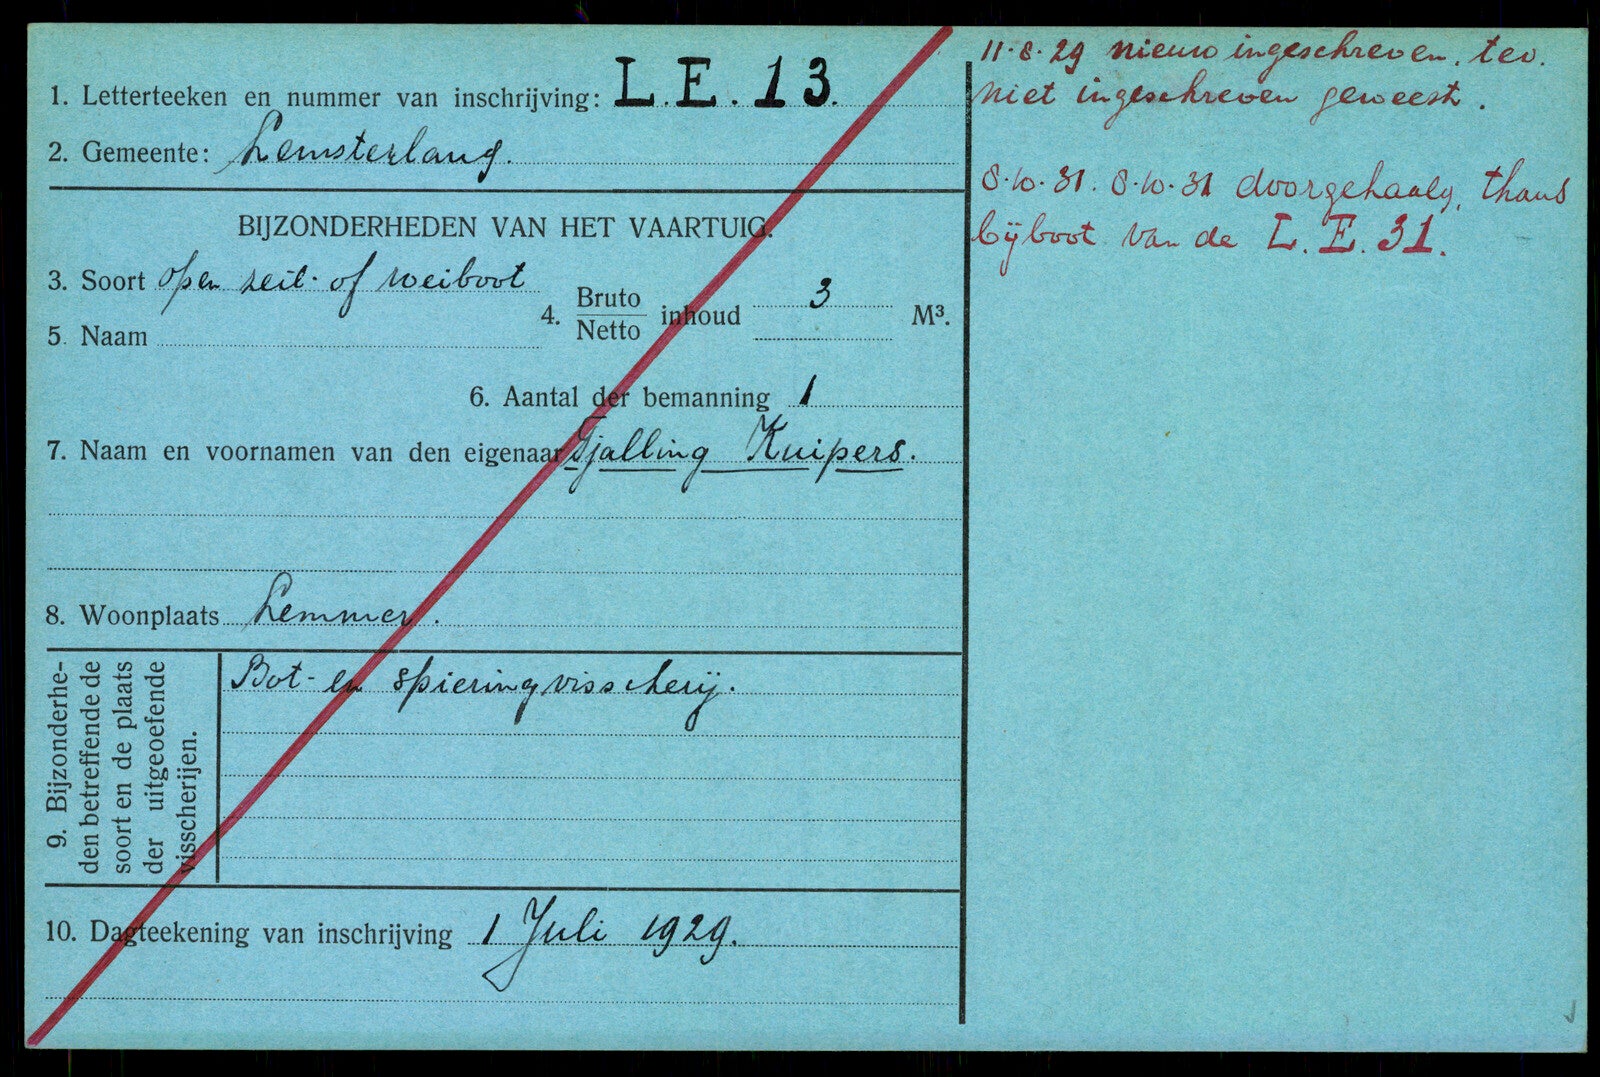 1. Letterteeken en nummer van inschrijving: L.E. 13.
2. Gemeente: Lemsterland.
BIJZONDERHEDEN VAN HET VAARTUIG.
3. Soort open zeil- of roeiboot
4. Bruto Netto inhoud 3 M³.
5. Naam
6. Aantal der bemanning 1
7. Naam en voornamen van den eigenaar Tjalling Kuipers.
8. Woonplaats Lemmer.
9. Bijzonderhe-
den betreffende de
soort en de plaats
der uitgeoefende
visscherijen.
Bot- en spieringvisscherij.
10. Dagteekening van inschrijving 1 Juli 1929.
11-8-29 nieuw ingeschreven, tev.
niet ingeschreven geweest.
8-10-31. 8-10-31 doorgehaald, thans
bijboot van de L.E. 31.